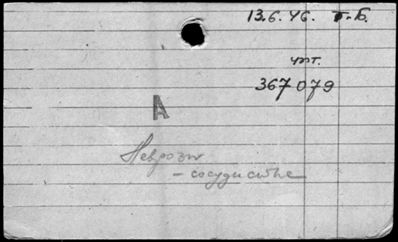 13.6.46. т.б.
чт.
367079
А
Неврозы
- сосудистые